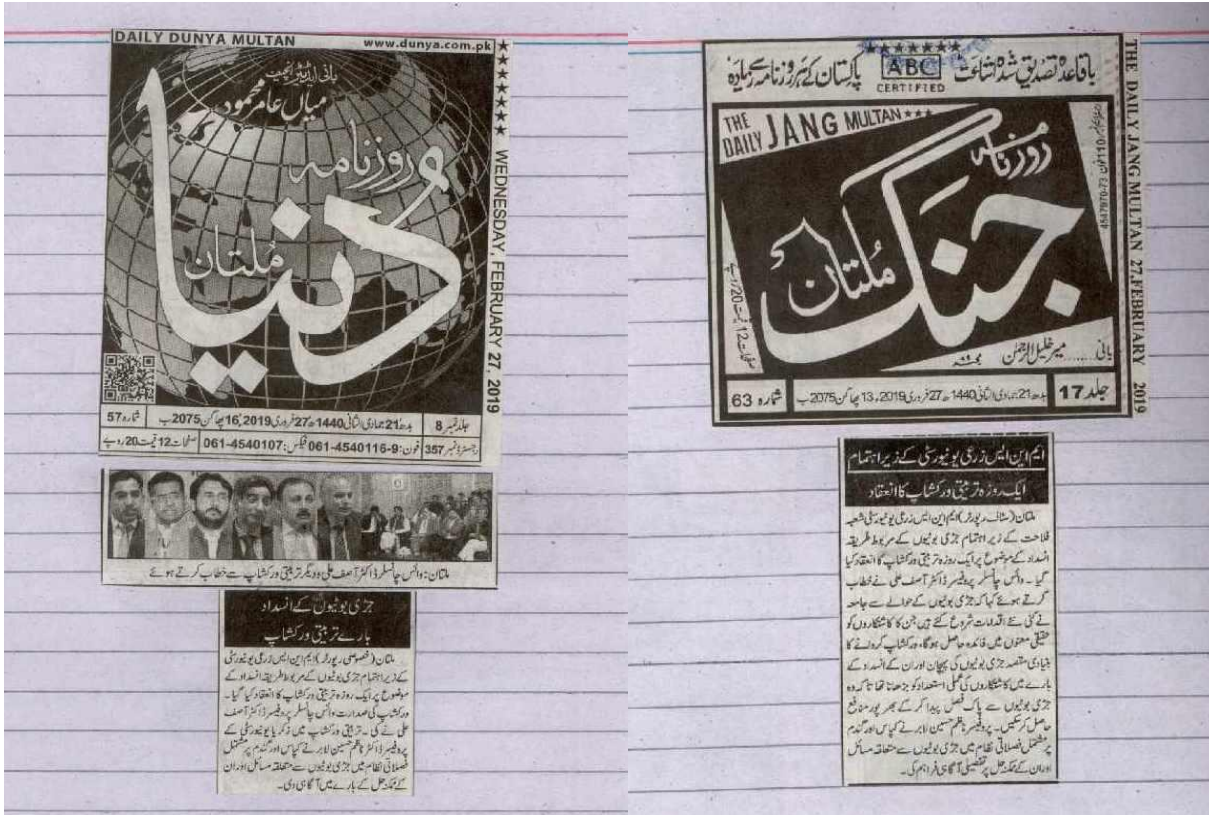 DAILY DUNYA MULTAN www.dunya.com.pk
بانی ایڈیٹر انچیف
میاں عامر محمود
روزنامہ
دُنیا
مُلتان
WEDNESDAY, FEBRUARY 27, 2019
جلد نمبر 8 بدھ 21 جمادی الثانی 1440ھ 27 فروری 2019، 16 پھاگن 2075ب شمارہ 57
رجسٹرڈ نمبر 357 فون: 9-4540116-061 فیکس: 4540107-061 صفحات 12 قیمت 20 روپے
ملتان: وائس چانسلر ڈاکٹر آصف علی ودیگر تربیتی ورکشاپ سے خطاب کرتے ہوئے
جڑی بوٹیوں کے انسداد
بارے تربیتی ورکشاپ
ملتان (خصوصی رپورٹر) ایم این ایس زرعی یونیورسٹی
کے زیر اہتمام جڑی بوٹیوں کے مربوط طریقہ انسداد کے
موضوع پر ایک روزہ تربیتی ورکشاپ کا انعقاد کیا گیا۔
ورکشاپ کی صدارت وائس چانسلر پروفیسر ڈاکٹر آصف
علی نے کی۔ تربیتی ورکشاپ میں زکریا یونیورسٹی کے
پروفیسر ڈاکٹر ناظم حسین لابر نے کپاس اور گندم پر مشتمل
فصلاتی نظام میں جڑی بوٹیوں سے متعلقہ مسائل اور ان
کے ممکنہ حل کے بارے میں آگاہی دی۔
باقاعدہ تصدیق شدہ اشاعت ABC CERTIFIED پاکستان کے ہر روزنامہ سے زیادہ
THE DAILY JANG MULTAN
روزنامہ
جنگ
مُلتان
4547970-73
صفحات 12 قیمت 20 روپے
بانی......میر خلیل الرحمٰن
THE DAILY JANG MULTAN 27, FEBRUARY 2019
جلد 17 بدھ 21 جمادی الثانی 1440ھ 27 فروری 2019، 13 پھاگن 2075ب شمارہ 63
ایم این ایس زرعی یونیورسٹی کے زیر اہتمام
ایک روزہ تربیتی ورکشاپ کا انعقاد
ملتان (سٹاف رپورٹر) ایم این ایس زرعی یونیورسٹی شعبہ
فلاحت کے زیر اہتمام جڑی بوٹیوں کے مربوط طریقہ
انسداد کے موضوع پر ایک روزہ تربیتی ورکشاپ کا انعقاد کیا
گیا۔ وائس چانسلر پروفیسر ڈاکٹر آصف علی نے خطاب
کرتے ہوئے کہا کہ جڑی بوٹیوں کے حوالے سے جامعہ
نے کئی نئے اقدامات شروع کئے ہیں جن کا کاشتکاروں کو
حقیقی معنوں میں فائدہ حاصل ہوگا، ورکشاپ کروانے کا
بنیادی مقصد جڑی بوٹیوں کی پہچان اور ان کے انسداد کے
بارے میں کاشتکاروں کی عملی استعداد کو بڑھانا تھا تاکہ وہ
جڑی بوٹیوں سے پاک فصل پیدا کر کے بھرپور منافع
حاصل کر سکیں۔ پروفیسر ناظم حسین لابر نے کپاس اور گندم
پر مشتمل فصلاتی نظام میں جڑی بوٹیوں سے متعلقہ مسائل
اور ان کے ممکنہ حل پر تفصیلی آگاہی فراہم کی۔